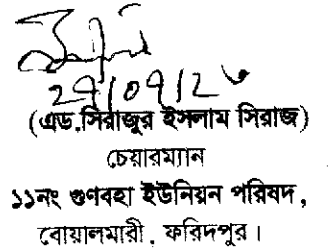 (এড.সিরাজুর ইসলাম সিরাজ)
চেয়ারম্যান
১১নং গুণবহা ইউনিয়ন পরিষদ,
বোয়ালমারী, ফরিদপুর।